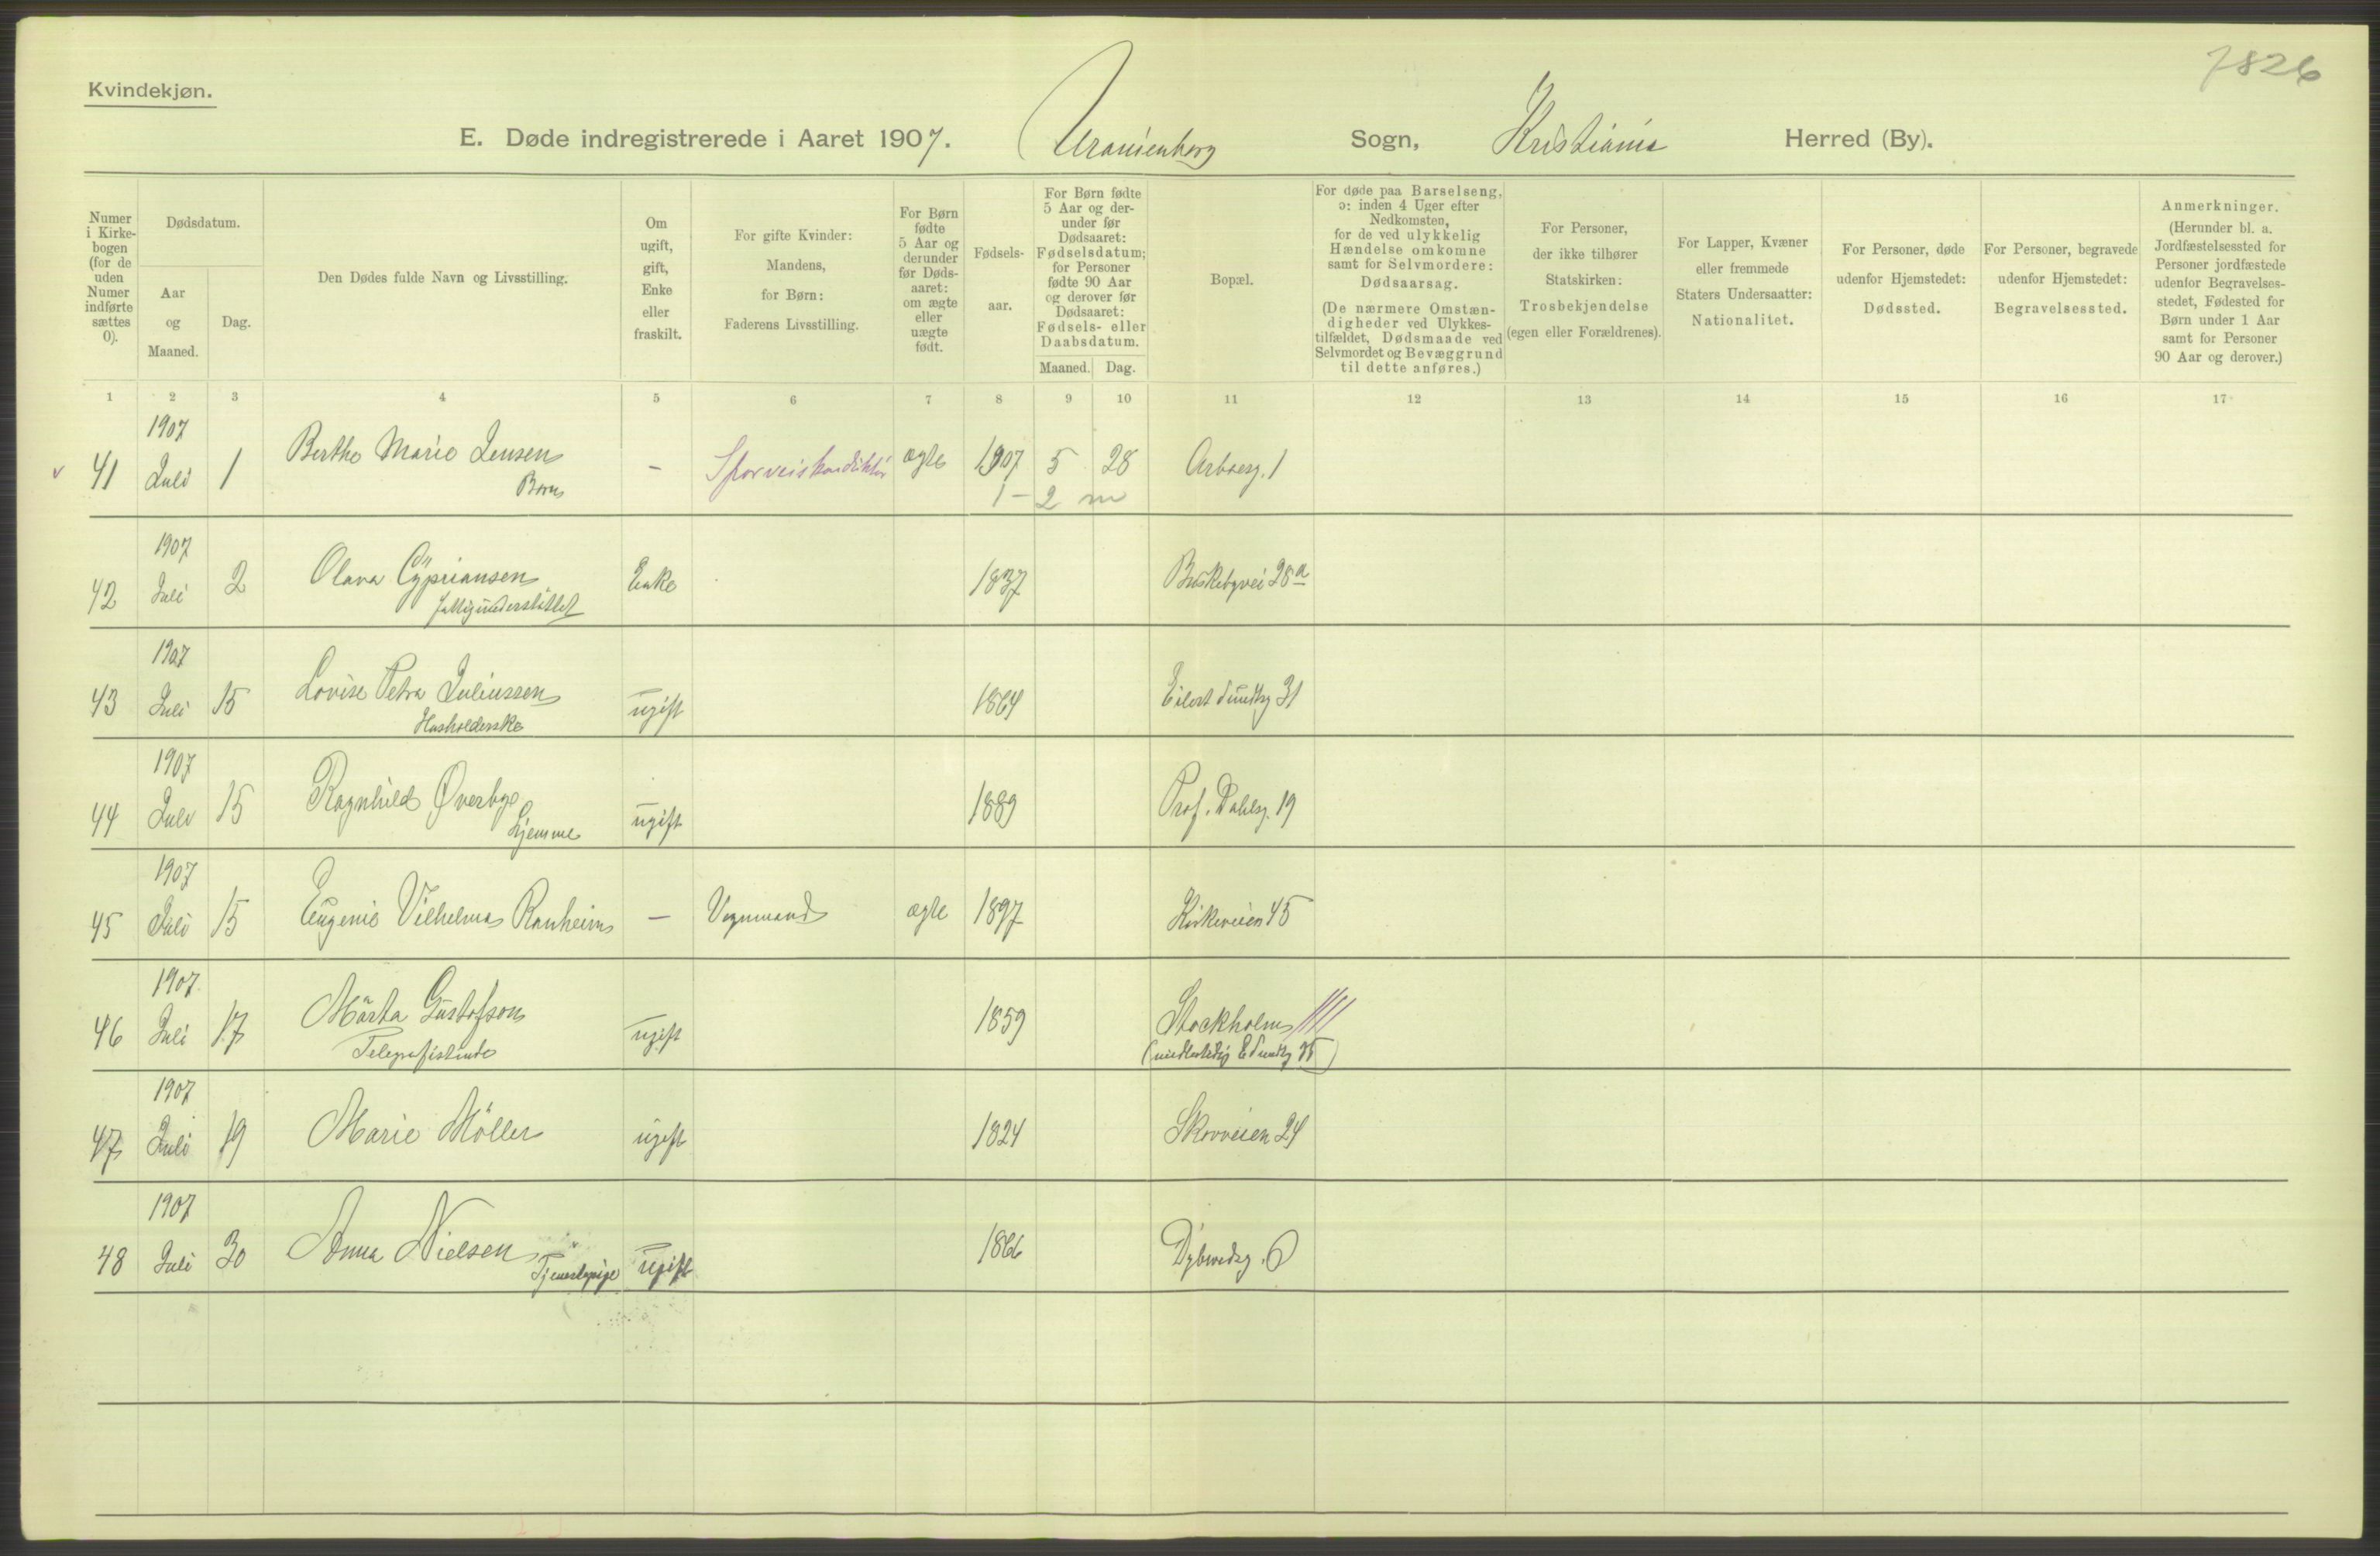 7826
Kvindekjøn.
E. Døde indregistrerede i Aaret 1907. Uranienborg Sogn, Kristiania Herred (By).
Numer i Kirke-bogen (for de uden Numer indførte sættes 0).
Dødsdatum.
Aar og Maaned.
Dag.
Den Dødes fulde Navn og Livsstilling.
Om ugift, gift, Enke eller fraskilt.
For gifte Kvinder: Mandens, for Børn: Faderens Livsstilling.
For Børn fødte 5 Aar og derunder før Døds-aaret: om ægte eller uægte født.
Fødsels-aar.
For Børn fødte 5 Aar og der-under før Dødsaaret: Fødselsdatum; for Personer fødte 90 Aar og derover før Dødsaaret: Fødsels- eller Daabsdatum.
Maaned. Dag.
Bopæl.
For døde paa Barselseng, ɔ: inden 4 Uger efter Nedkomsten, for de ved ulykkelig Hændelse omkomne samt for Selvmordere: Dødsaarsag.
(De nærmere Omstæn-digheder ved Ulykkes-tilfældet, Dødsmaade ved Selvmordet og Bevæggrund til dette anføres.)
For Personer, der ikke tilhører Statskirken: Trosbekjendelse (egen eller Forældrenes).
For Lapper, Kvæner eller fremmede Staters Undersaatter: Nationalitet.
For Personer, døde udenfor Hjemstedet: Dødssted.
For Personer, begravede udenfor Hjemstedet: Begravelsessted.
Anmerkninger.
(Herunder bl. a. Jordfæstelsessted for Personer jordfæstede udenfor Begravelses-stedet, Fødested for Børn under 1 Aar samt for Personer 90 Aar og derover.)
1 2 3 4 5 6 7 8 9 10 11 12 13 14 15 16 17
1907
v 41 Juli 1 Berthe Marie Jensen - Sporveiskonduktør ægte 1907 5 28 Arbosg. 1
Barn 1 - 2 m
1907
42 Juli 2 Olava Cypriansen Enke 1837 Briskebyvei 28a
fattigunderstøttet
1907
43 Juli 15 Lovise Petra Juliussen ugift 1864 Eilert Sundtsg 31
Husholderske
1907
44 Juli 15 Ragnhild Øverbye ugift 1889 Prof. Dahlsg. 19
hjemme
1907
45 Juli 15 Eugenie Vilhelma Ranheim - Vognmand ægte 1897 Kirkeveien 45
1907
46 Juli 17 Märta Gustafson ugift 1859 Stockholm
Telegrafistinde (midlertidig E Sundtsg 35)
1907
47 Juli 19 Marie Möller ugift 1824 Skovveien 24
1907
48 Juli 30 Anna Nielsen ugift 1866 Dybwadsg. 6
Tjenestepige